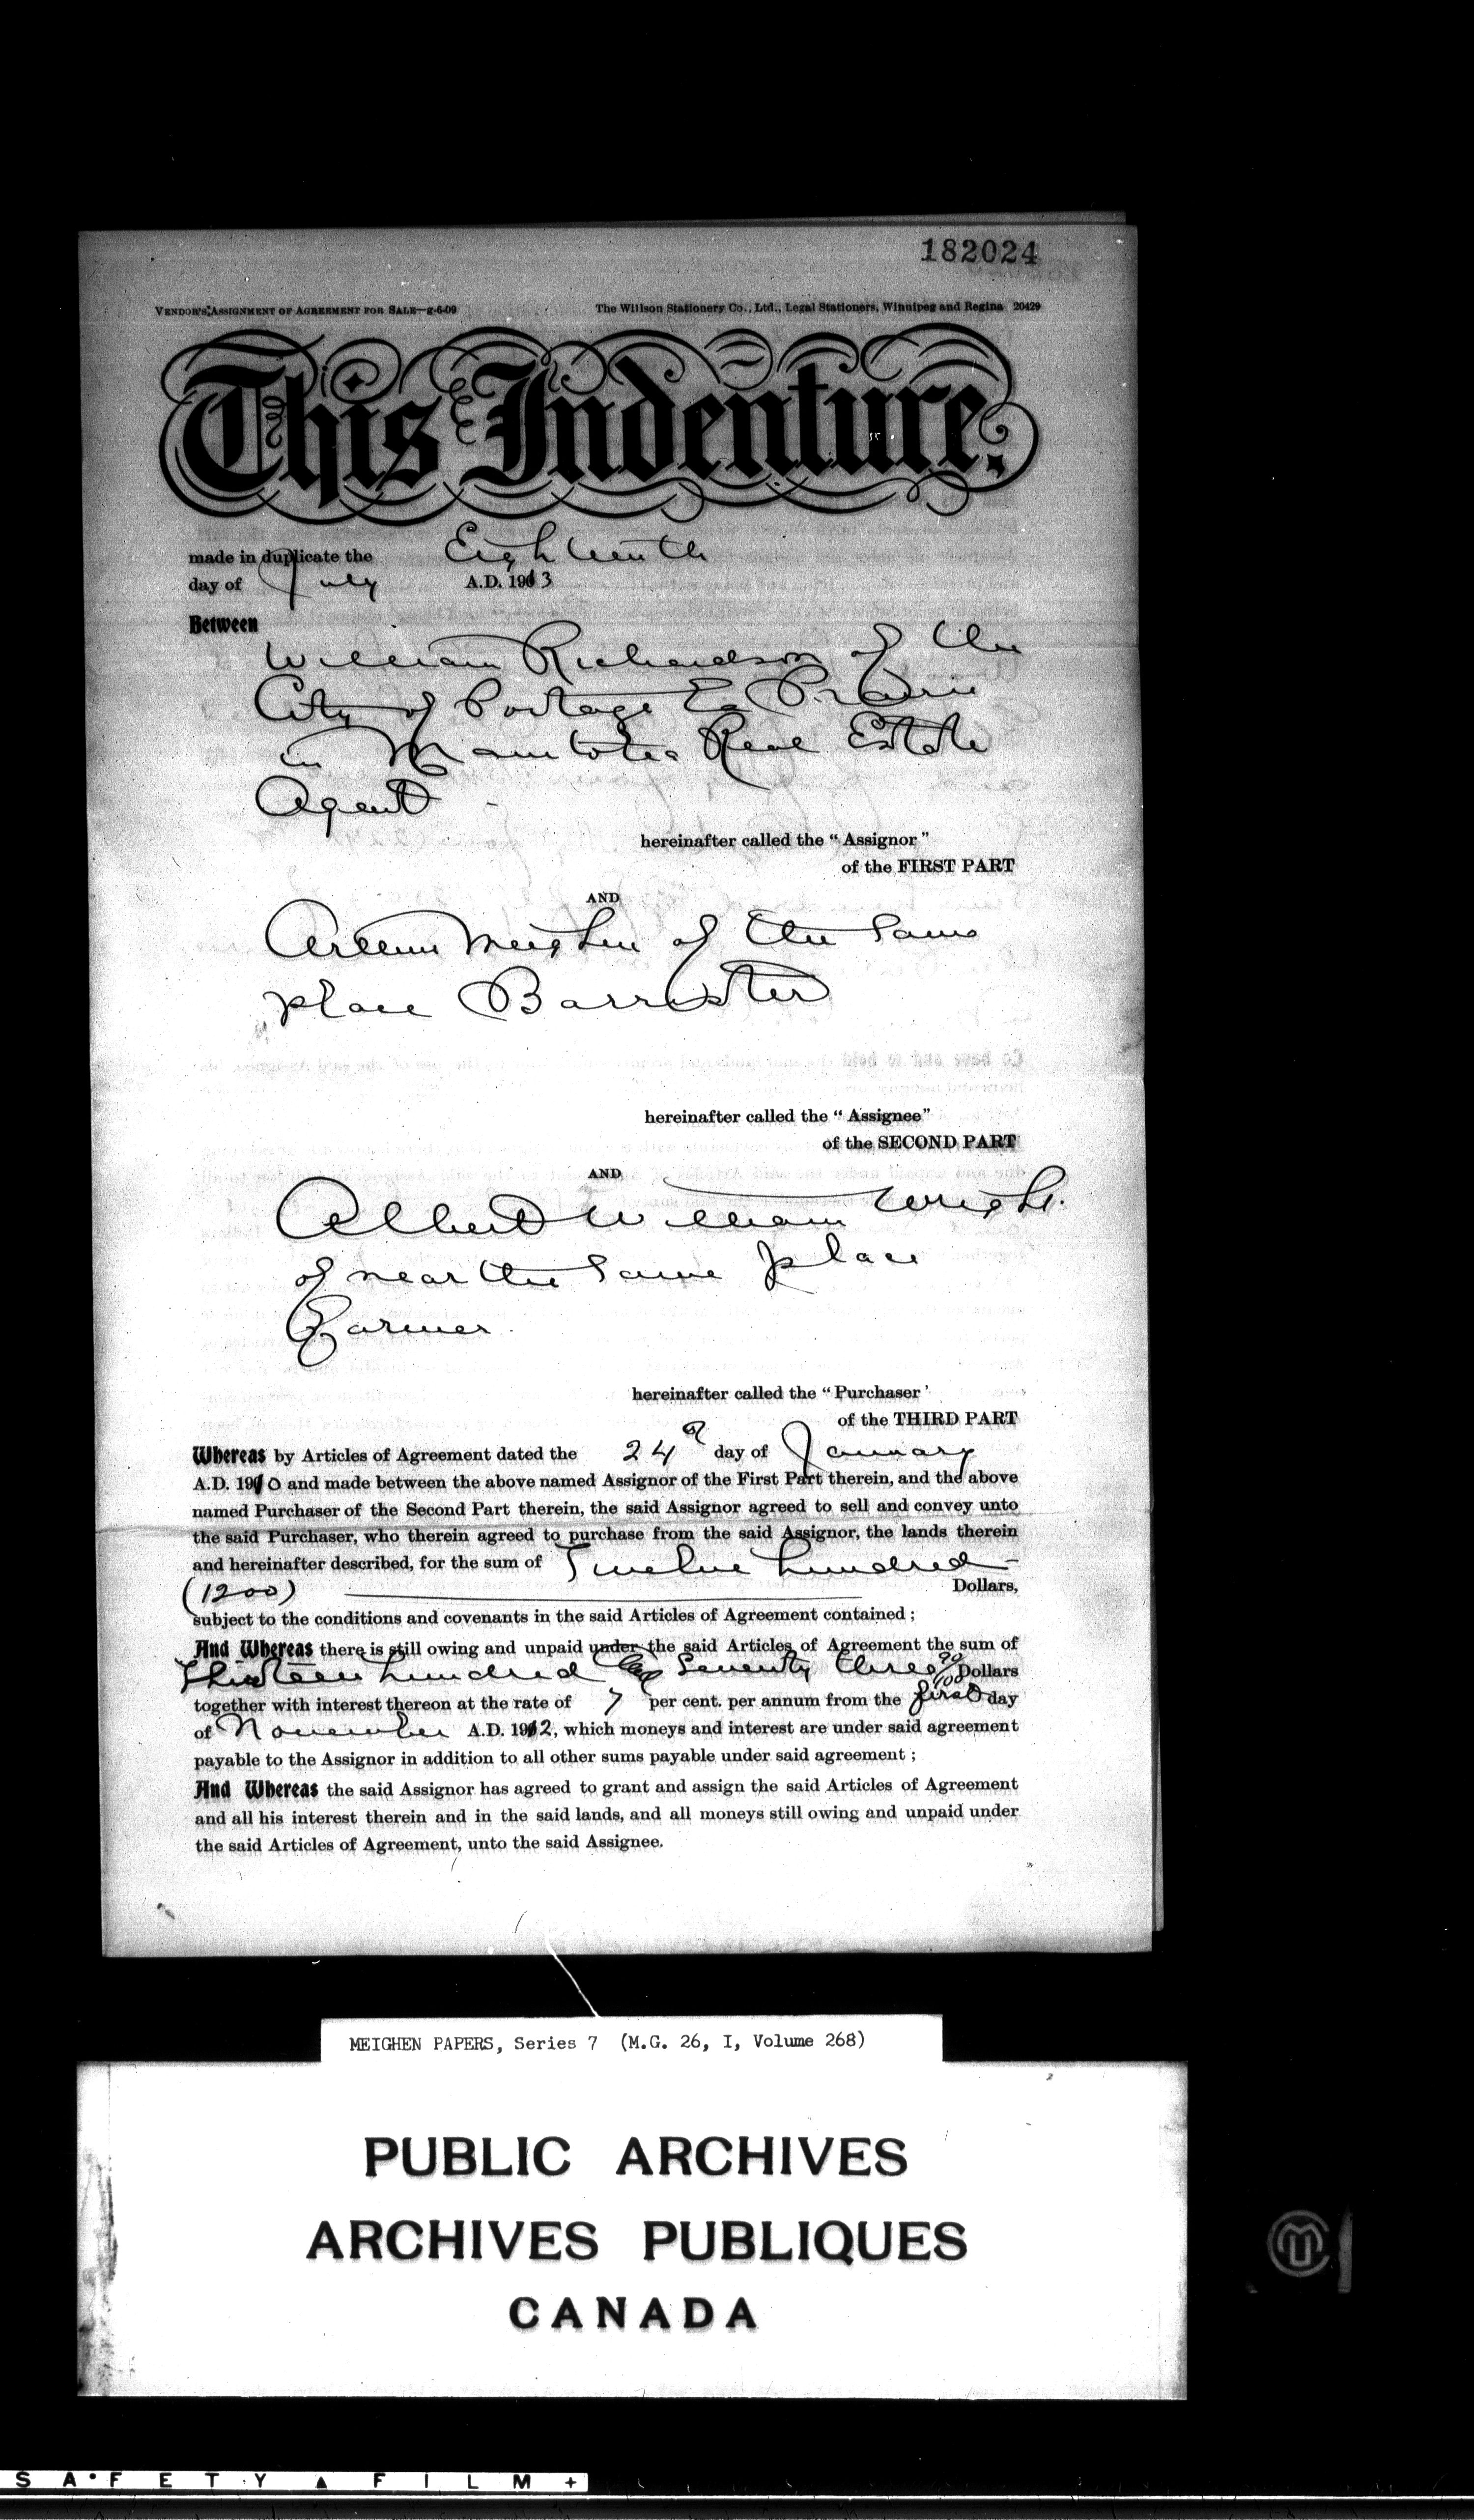 182024
VENDOR'S ASSIGNMENT OF AGREEMENT FOR SALE—g-6-09 The Willson Stationery Co., Ltd., Legal Stationers, Winnipeg and Regina 20429
This Indenture.
made in duplicate the Eighteenth
day of July A.D. 1913
Between
William Richardson of the
City of Portage La Prairie
in Manitoba Real Estate
Agent
hereinafter called the “Assignor”
of the FIRST PART
AND
Arthur Meighen of the same
place Barrister
hereinafter called the “Assignee”
of the SECOND PART
AND
Albert William Wright
of near the same place
Farmer.
hereinafter called the “Purchaser'
of the THIRD PART
Whereas by Articles of Agreement dated the 24 day of January
A.D. 1910 and made between the above named Assignor of the First Part therein, and the above
named Purchaser of the Second Part therein, the said Assignor agreed to sell and convey unto
the said Purchaser, who therein agreed to purchase from the said Assignor, the lands therein
and hereinafter described, for the sum of Twelve hundred
(1200) Dollars,
subject to the conditions and covenants in the said Articles of Agreement contained;
And Whereas there is still owing and unpaid under the said Articles of Agreement the sum of
hundred Seventy three Dollars
together with interest thereon at the rate of 7 per cent. per annum from the first day
of November A.D. 1912, which moneys and interest are under said agreement
payable to the Assignor in addition to all other sums payable under said agreement;
And Whereas the said Assignor has agreed to grant and assign the said Articles of Agreement
and all his interest therein and in the said lands, and all moneys still owing and unpaid under
the said Articles of Agreement, unto the said Assignee.
MEIGHEN PAPERS, Series 7 (M.G. 26, I, Volume 268)
PUBLIC ARCHIVES
ARCHIVES PUBLIQUES
CANADA
SAFETY ▲ FILM +